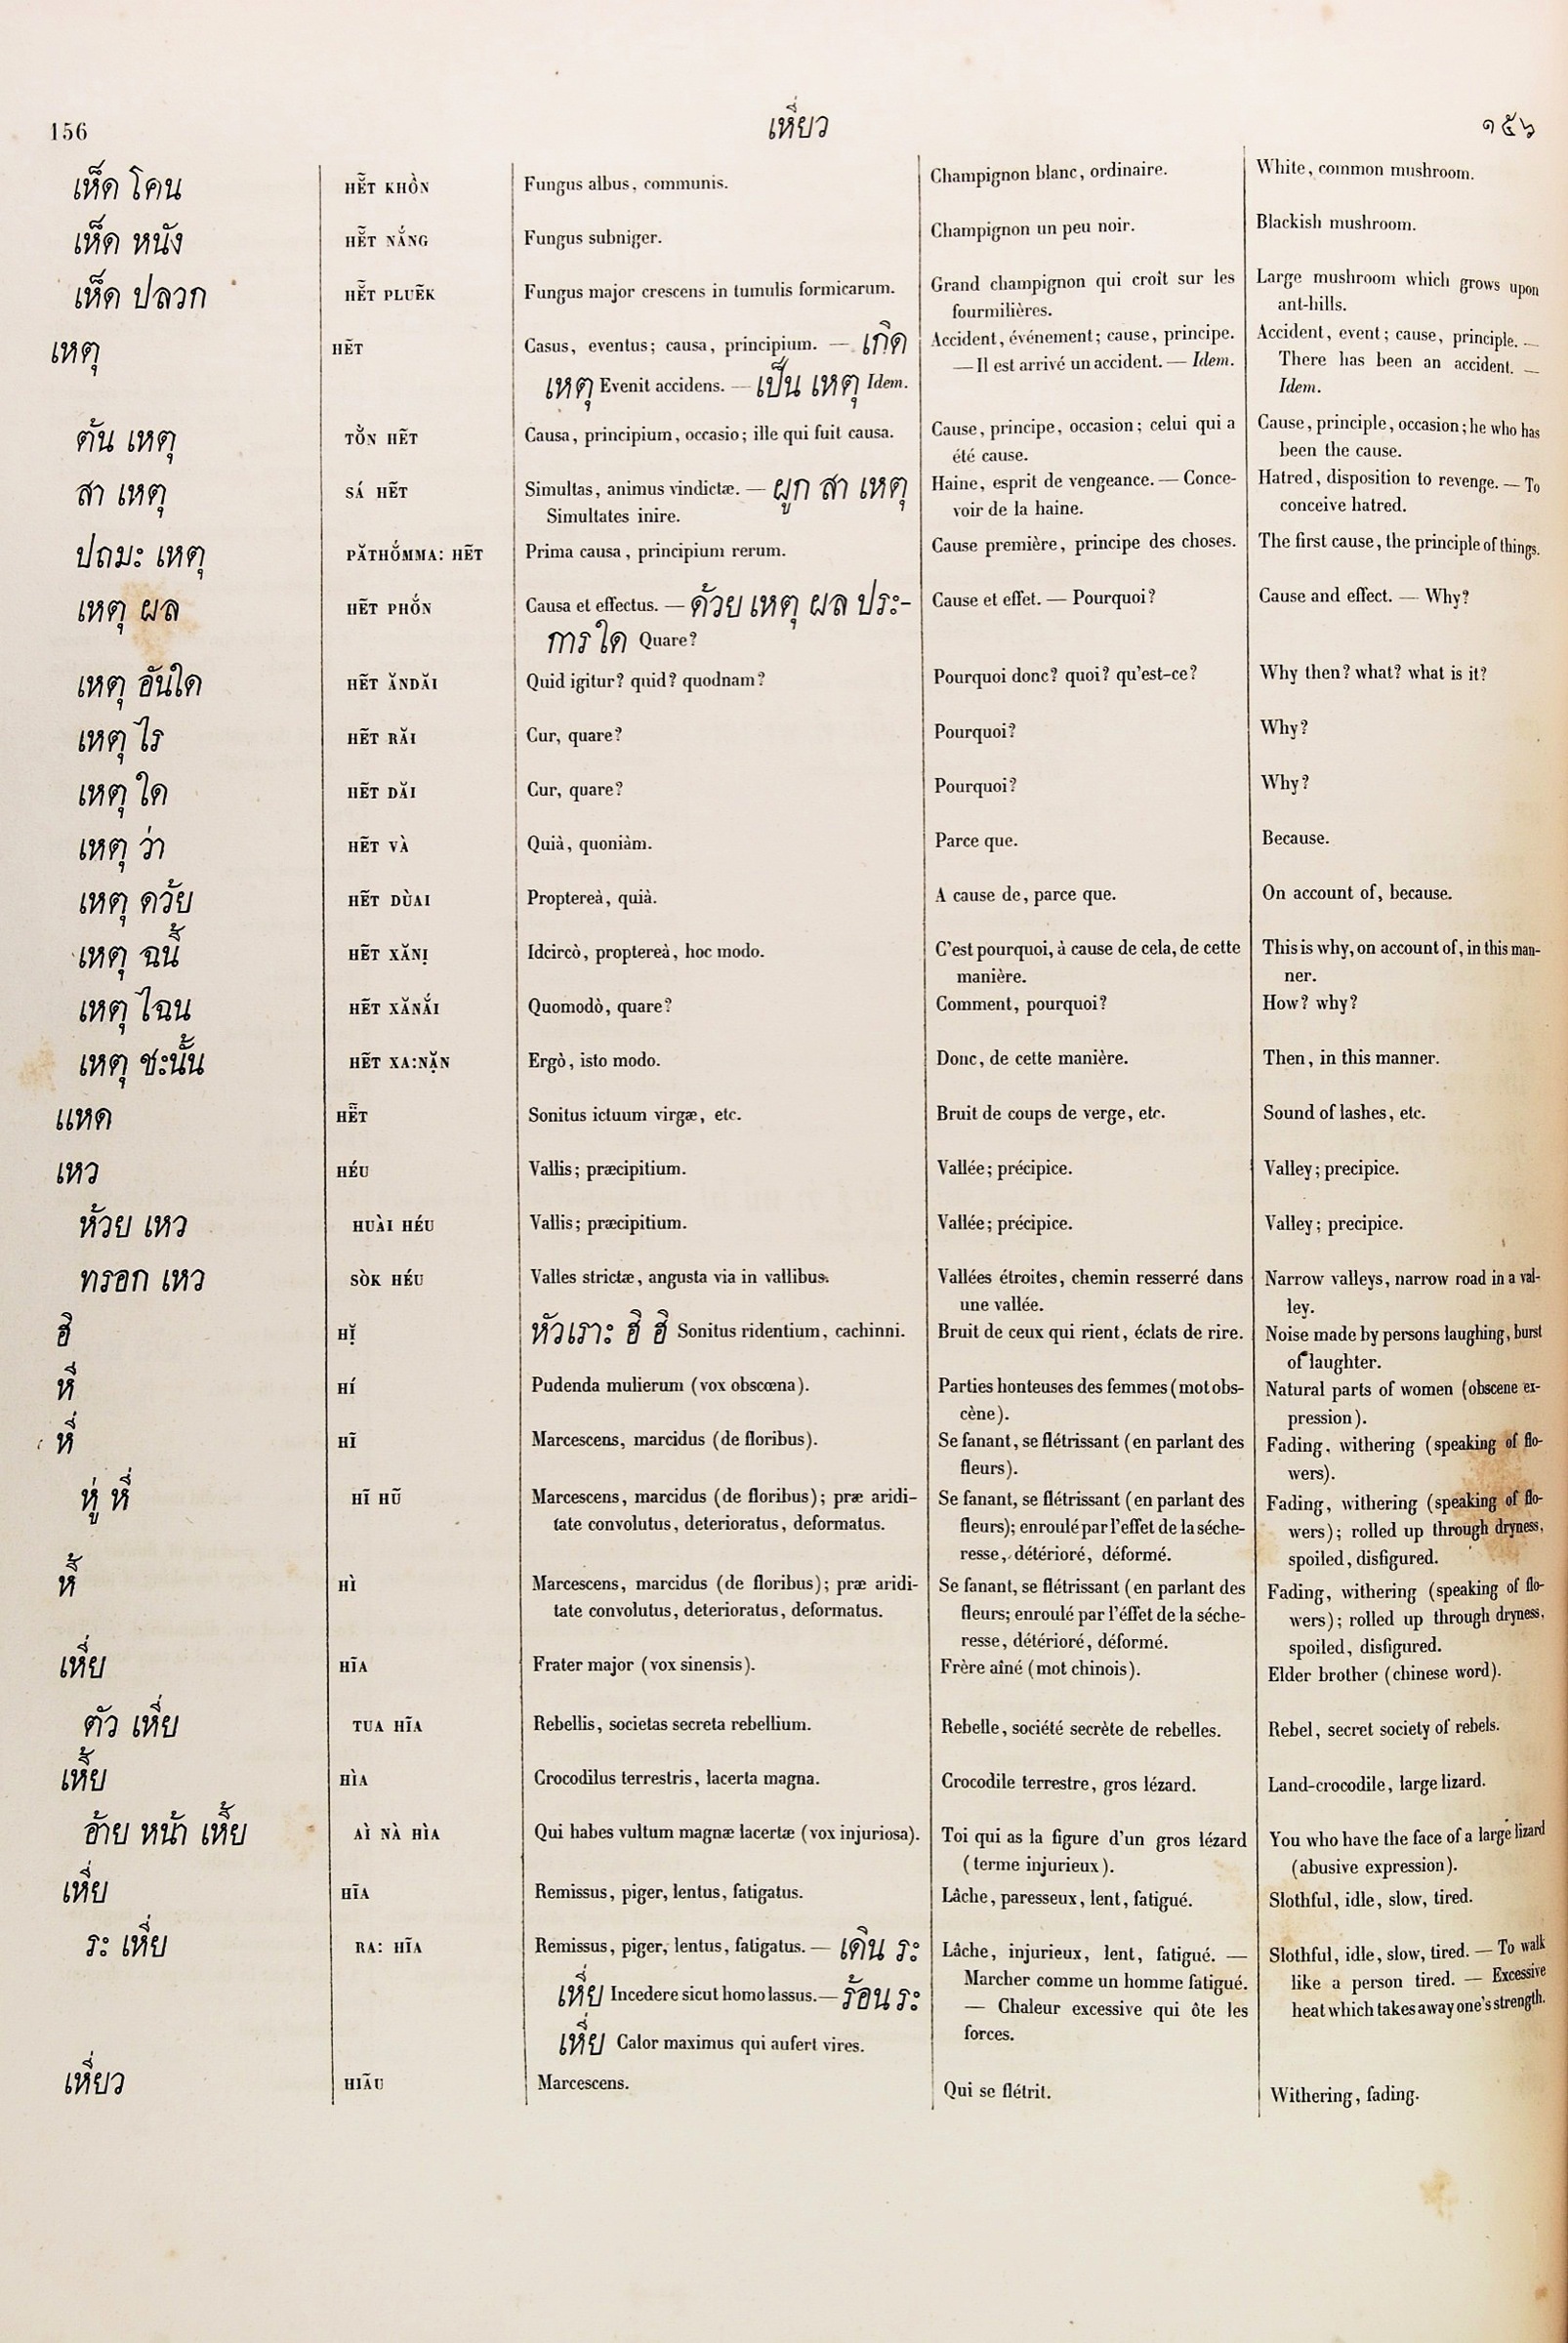 156 เหี่ยว ๑๕๖
เห็ด โคน HẼ̆T KHỒN Fungus albus, communis. Champignon blanc, ordinaire. White, common mushroom.
เห็ด หนัง HẼ̆T NẮNG Fungus subniger. Champignon un peu noir. Blackish mushroom.
เห็ด ปลวก HẼ̆T PLUẼK Fungus major crescens in tumulis formicarum. Grand champignon qui croît sur les Large mushroom which grows upon
fourmilières. ant-hills.
เหตุ HẼT Casus, eventus; causa, principium. — เกิด Accident, événement; cause, principe. Accident, event; cause, principle. —
เหตุ Evenit accidens. — เป็น เหตุ Idem. — Il est arrivé un accident. — Idem. There has been an accident. —
Idem.
ต้น เหตุ TỒN HẼT Causa, principium, occasio; ille qui fuit causa. Cause, principe, occasion; celui qui a Cause, principle, occasion; he who has
été cause. been the cause.
สา เหตุ SÁ HẼT Simultas, animus vindictæ. — ผูก สา เหตุ Haine, esprit de vengeance. — Conce- Hatred, disposition to revenge. — To
Simultates inire. voir de la haine. conceive hatred.
ปถมะ เหตุ PĂTHỐMMA: HẼT Prima causa, principium rerum. Cause première, principe des choses. The first cause, the principle of things.
เหตุ ผล HẼT PHỐN Causa et effectus. — ด้วย เหตุ ผล ประ- Cause et effet. — Pourquoi? Cause and effect. — Why?
การ ใด Quare?
เหตุ อันใด HẼT ĂNDĂI Quid igitur? quid? quodnam? Pourquoi donc? quoi? qu'est-ce? Why then? what? what is it?
เหตุ ไร HẼT RĂI Cur, quare? Pourquoi? Why?
เหตุ ใด HẼT DĂI Cur, quare? Pourquoi? Why?
เหตุ ว่า HẼT VÀ Quià, quoniàm. Parce que. Because.
เหตุ ดว้ย HẼT DÙAI Proptereà, quià. A cause de, parce que. On account of, because.
เหตุ ฉนี้ HẼT XĂNỊ Idcircò, proptereà, hoc modo. C'est pourquoi, à cause de cela, de cette This is why, on account of, in this man-
manière. ner.
เหตุ ไฉน HẼT XĂNẮI Quomodò, quare? Comment, pourquoi? How? why?
เหตุ ชะนั้น HẼT XA:NẶN Ergò, isto modo. Donc, de cette manière. Then, in this manner.
แหด HẼ̈T Sonitus ictuum virgæ, etc. Bruit de coups de verge, etc. Sound of lashes, etc.
เหว HÉU Vallis; præcipitium. Vallée; précipice. Valley; precipice.
ห้วย เหว HUÀI HÉU Vallis; præcipitium. Vallée; précipice. Valley; precipice.
ทรอก เหว SÒK HÉU Valles strictæ, angusta via in vallibus. Vallées étroites, chemin resserré dans Narrow valleys, narrow road in a val-
une vallée. ley.
ฮิ HỊ̆ หัวเราะ ฮิ ฮิ Sonitus ridentium, cachinni. Bruit de ceux qui rient, éclats de rire. Noise made by persons laughing, burst
of laughter.
หี HÍ Pudenda mulierum (vox obscœna). Parties honteuses des femmes (mot obs- Natural parts of women (obscene ex-
cène). pression).
หี่ HĨ Marcescens, marcidus (de floribus). Se fanant, se flétrissant (en parlant des Fading, withering (speaking of flo-
fleurs). wers).
หู่ หี่ HĨ HŨ Marcescens, marcidus (de floribus); præ aridi- Se fanant, se flétrissant (en parlant des Fading, withering (speaking of flo-
tate convolutus, deterioratus, deformatus. fleurs); enroulé par l'effet de la séche- wers); rolled up through dryness,
resse, détérioré, déformé. spoiled, disfigured.
หี้ HÌ Marcescens, marcidus (de floribus); præ aridi- Se fanant, se flétrissant (en parlant des Fading, withering (speaking of flo-
tate convolutus, deterioratus, deformatus. fleurs; enroulé par l'éffet de la séche- wers); rolled up through dryness,
resse, détérioré, déformé. spoiled, disfigured.
เหี่ย HĨA Frater major (vox sinensis). Frère aîné (mot chinois). Elder brother (chinese word).
ตัว เหี่ย TUA HĨA Rebellis, societas secreta rebellium. Rebelle, société secrète de rebelles. Rebel, secret society of rebels.
เหี้ย HÌA Crocodilus terrestris, lacerta magna. Crocodile terrestre, gros lézard. Land-crocodile, large lizard.
อ้าย หน้า เหี้ย AÌ NÀ HÌA Qui habes vultum magnæ lacertæ (vox injuriosa). Toi qui as la figure d'un gros lézard You who have the face of a large lizard
(terme injurieux). (abusive expression).
เหี่ย HĨA Remissus, piger, lentus, fatigatus. Lâche, paresseux, lent, fatigué. Slothful, idle, slow, tired.
ระ เหี่ย RA: HĨA Remissus, piger, lentus, fatigatus. — เดิน ระ Lâche, injurieux, lent, fatigué. — Slothful, idle, slow, tired. — To walk
เหี่ย Incedere sicut homo lassus. — ร้อน ระ Marcher comme un homme fatigué. like a person tired. — Excessive
เหี่ย Calor maximus qui aufert vires. — Chaleur excessive qui ôte les heat which takes away one's strength.
forces.
เหี่ยว HIÃU Marcescens. Qui se flétrit. Withering, fading.